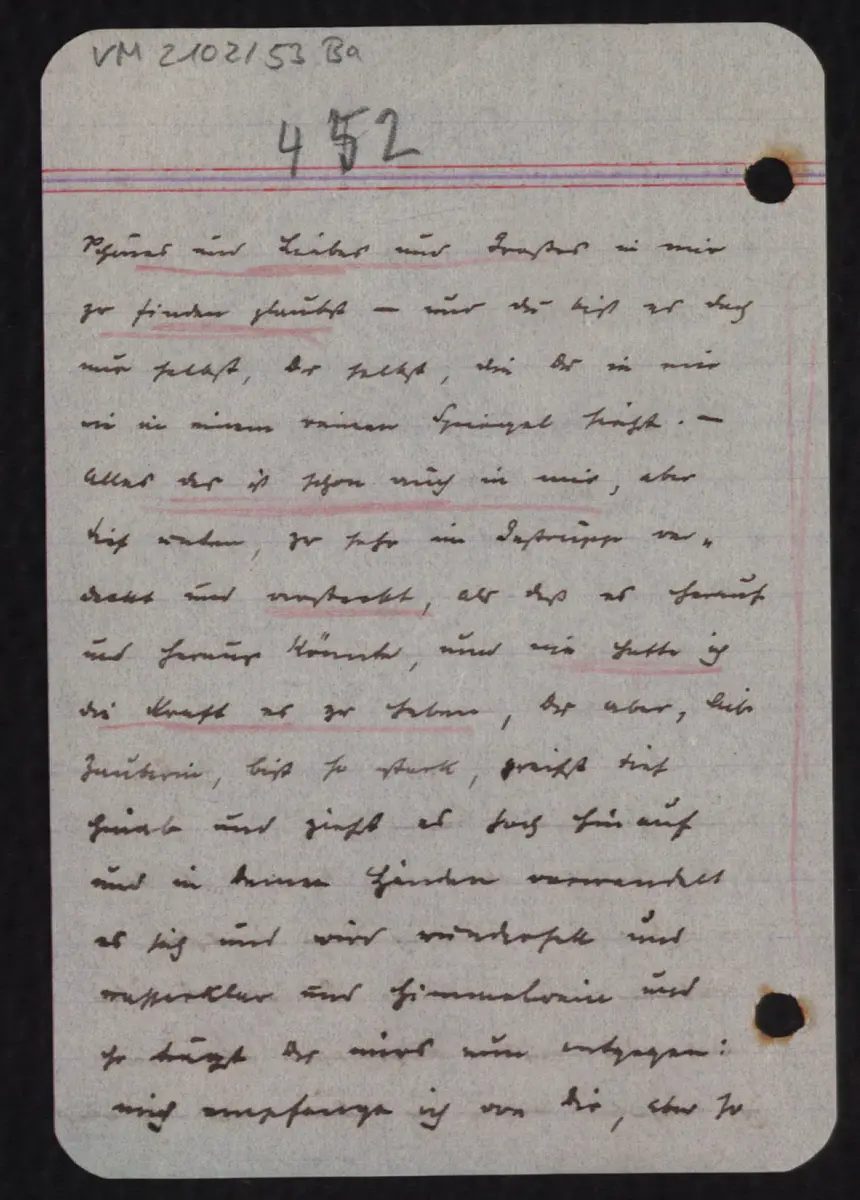 VM 2102/53 Ba
452
Schönes und Liebes und Großes in mir
zu finden glaubst – und du bist es doch
nur selbst, Du selbst, die Du in mir
wie in einem reinen Spiegel siehst. –
Alles das ist schon auch in mir, aber
tief unten, zu sehr im Gestrüpp ver„
deckt und versteckt, als daß es herauf
und heraus könnte, und nie hatte ich
die Kraft es zu heben, Du aber, liebe
Zauberin, bist so stark, greifst tief
hinab und ziehst es hoch hinauf
und in Deinen Händen verwandelt
es sich und wird wunderhell und
wasserklar und himmelrein und
so trägst Du mirs nun entgegen:
mich empfange ich von Dir, aber so